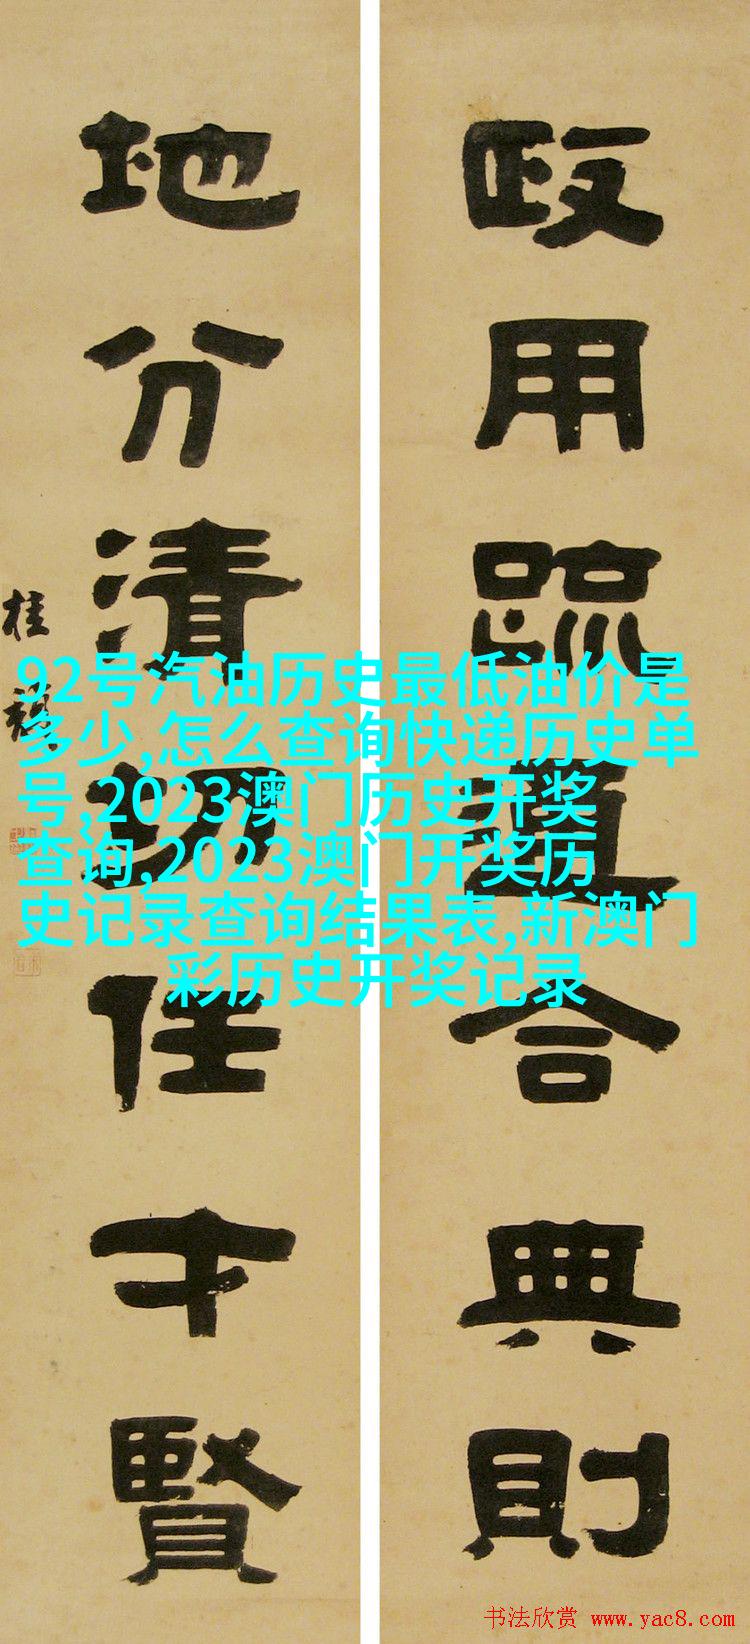 政用疏通合典則
地分清切任才賢
桂馥
92号汽油历史最低油价是
多少,怎么查询快递历史单
号,2023澳门历史开奖
查询,2023澳门开奖历
史记录查询结果表,新澳门
彩历史开奖记录
书法欣赏 www.yac8.com